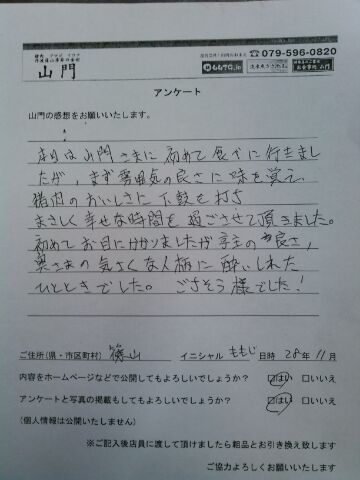 山門
☎079-596-0820
アンケート
山門の感想をお願いいたします。
本日は山門さまに初めて食べに行きまし
たが、まず雰囲気の良さに味を覚え、
猪肉のおいしさに 舌鼓を打ち
まさしく幸せな時間を過ごさせて頂きました。
初めてお目にかかりましたが 亭主の 良さ、
奥さまの気さくな人柄に酔いしれた
ひとときでした。 ごちそう様でした!
ご住所(県・市区町村) 篠山 イニシャル ももじ 日時 28年 11月
内容をホームページなどで公開してもよろしいでしょうか? □はい □いいえ
アンケートと写真の掲載もしてもよろしいでしょうか? □はい □いいえ
(個人情報は公開いたしません)
※ご記入後店員に渡して頂けましたら粗品とお引き換え致します
ご協力よろしくお願いいたします